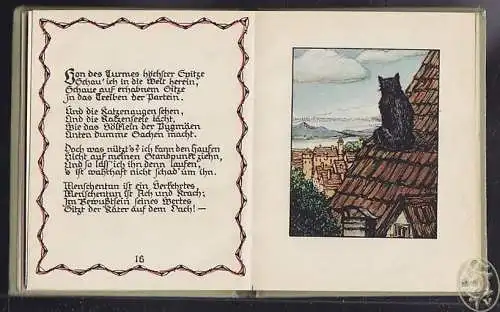 Von des Turmes höchster Spitze
Schau' ich in die Welt herein,
Schaue auf erhabnem Sitze
In das Treiben der Partein.
Und die Katzenaugen sehen,
Und die Katzenseele lacht,
Wie das Völklein der Pygmäen
Unten dumme Sachen macht.
Doch was nützt's? ich kann den Haufen
Nicht auf meinen Standpunkt ziehn,
Und so laß' ich ihn denn laufen,
's ist wahrhaft nicht schad' um ihn.
Menschentun ist ein Verkehrtes,
Menschentun ist Ach und Krach;
Im Bewußtsein seines Wertes
Sitzt der Kater auf dem Dach! —
16